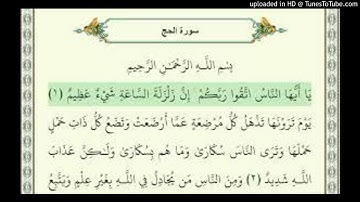 uploaded in HD @ TunesToTube.com
سورة الحج
بِسْمِ اللَّهِ الرَّحْمَٰنِ الرَّحِيمِ
يَا أَيُّهَا النَّاسُ اتَّقُوا رَبَّكُمْ إِنَّ زَلْزَلَةَ السَّاعَةِ شَيْءٌ عَظِيمٌ (١)
يَوْمَ تَرَوْنَهَا تَذْهَلُ كُلُّ مُرْضِعَةٍ عَمَّا أَرْضَعَتْ وَتَضَعُ كُلُّ ذَاتِ حَمْلٍ
حَمْلَهَا وَتَرَى النَّاسَ سُكَارَىٰ وَمَا هُم بِسُكَارَىٰ وَلَٰكِنَّ عَذَابَ
اللَّهِ شَدِيدٌ (٢) وَمِنَ النَّاسِ مَن يُجَادِلُ فِي اللَّهِ بِغَيْرِ عِلْمٍ وَيَتَّبِعُ